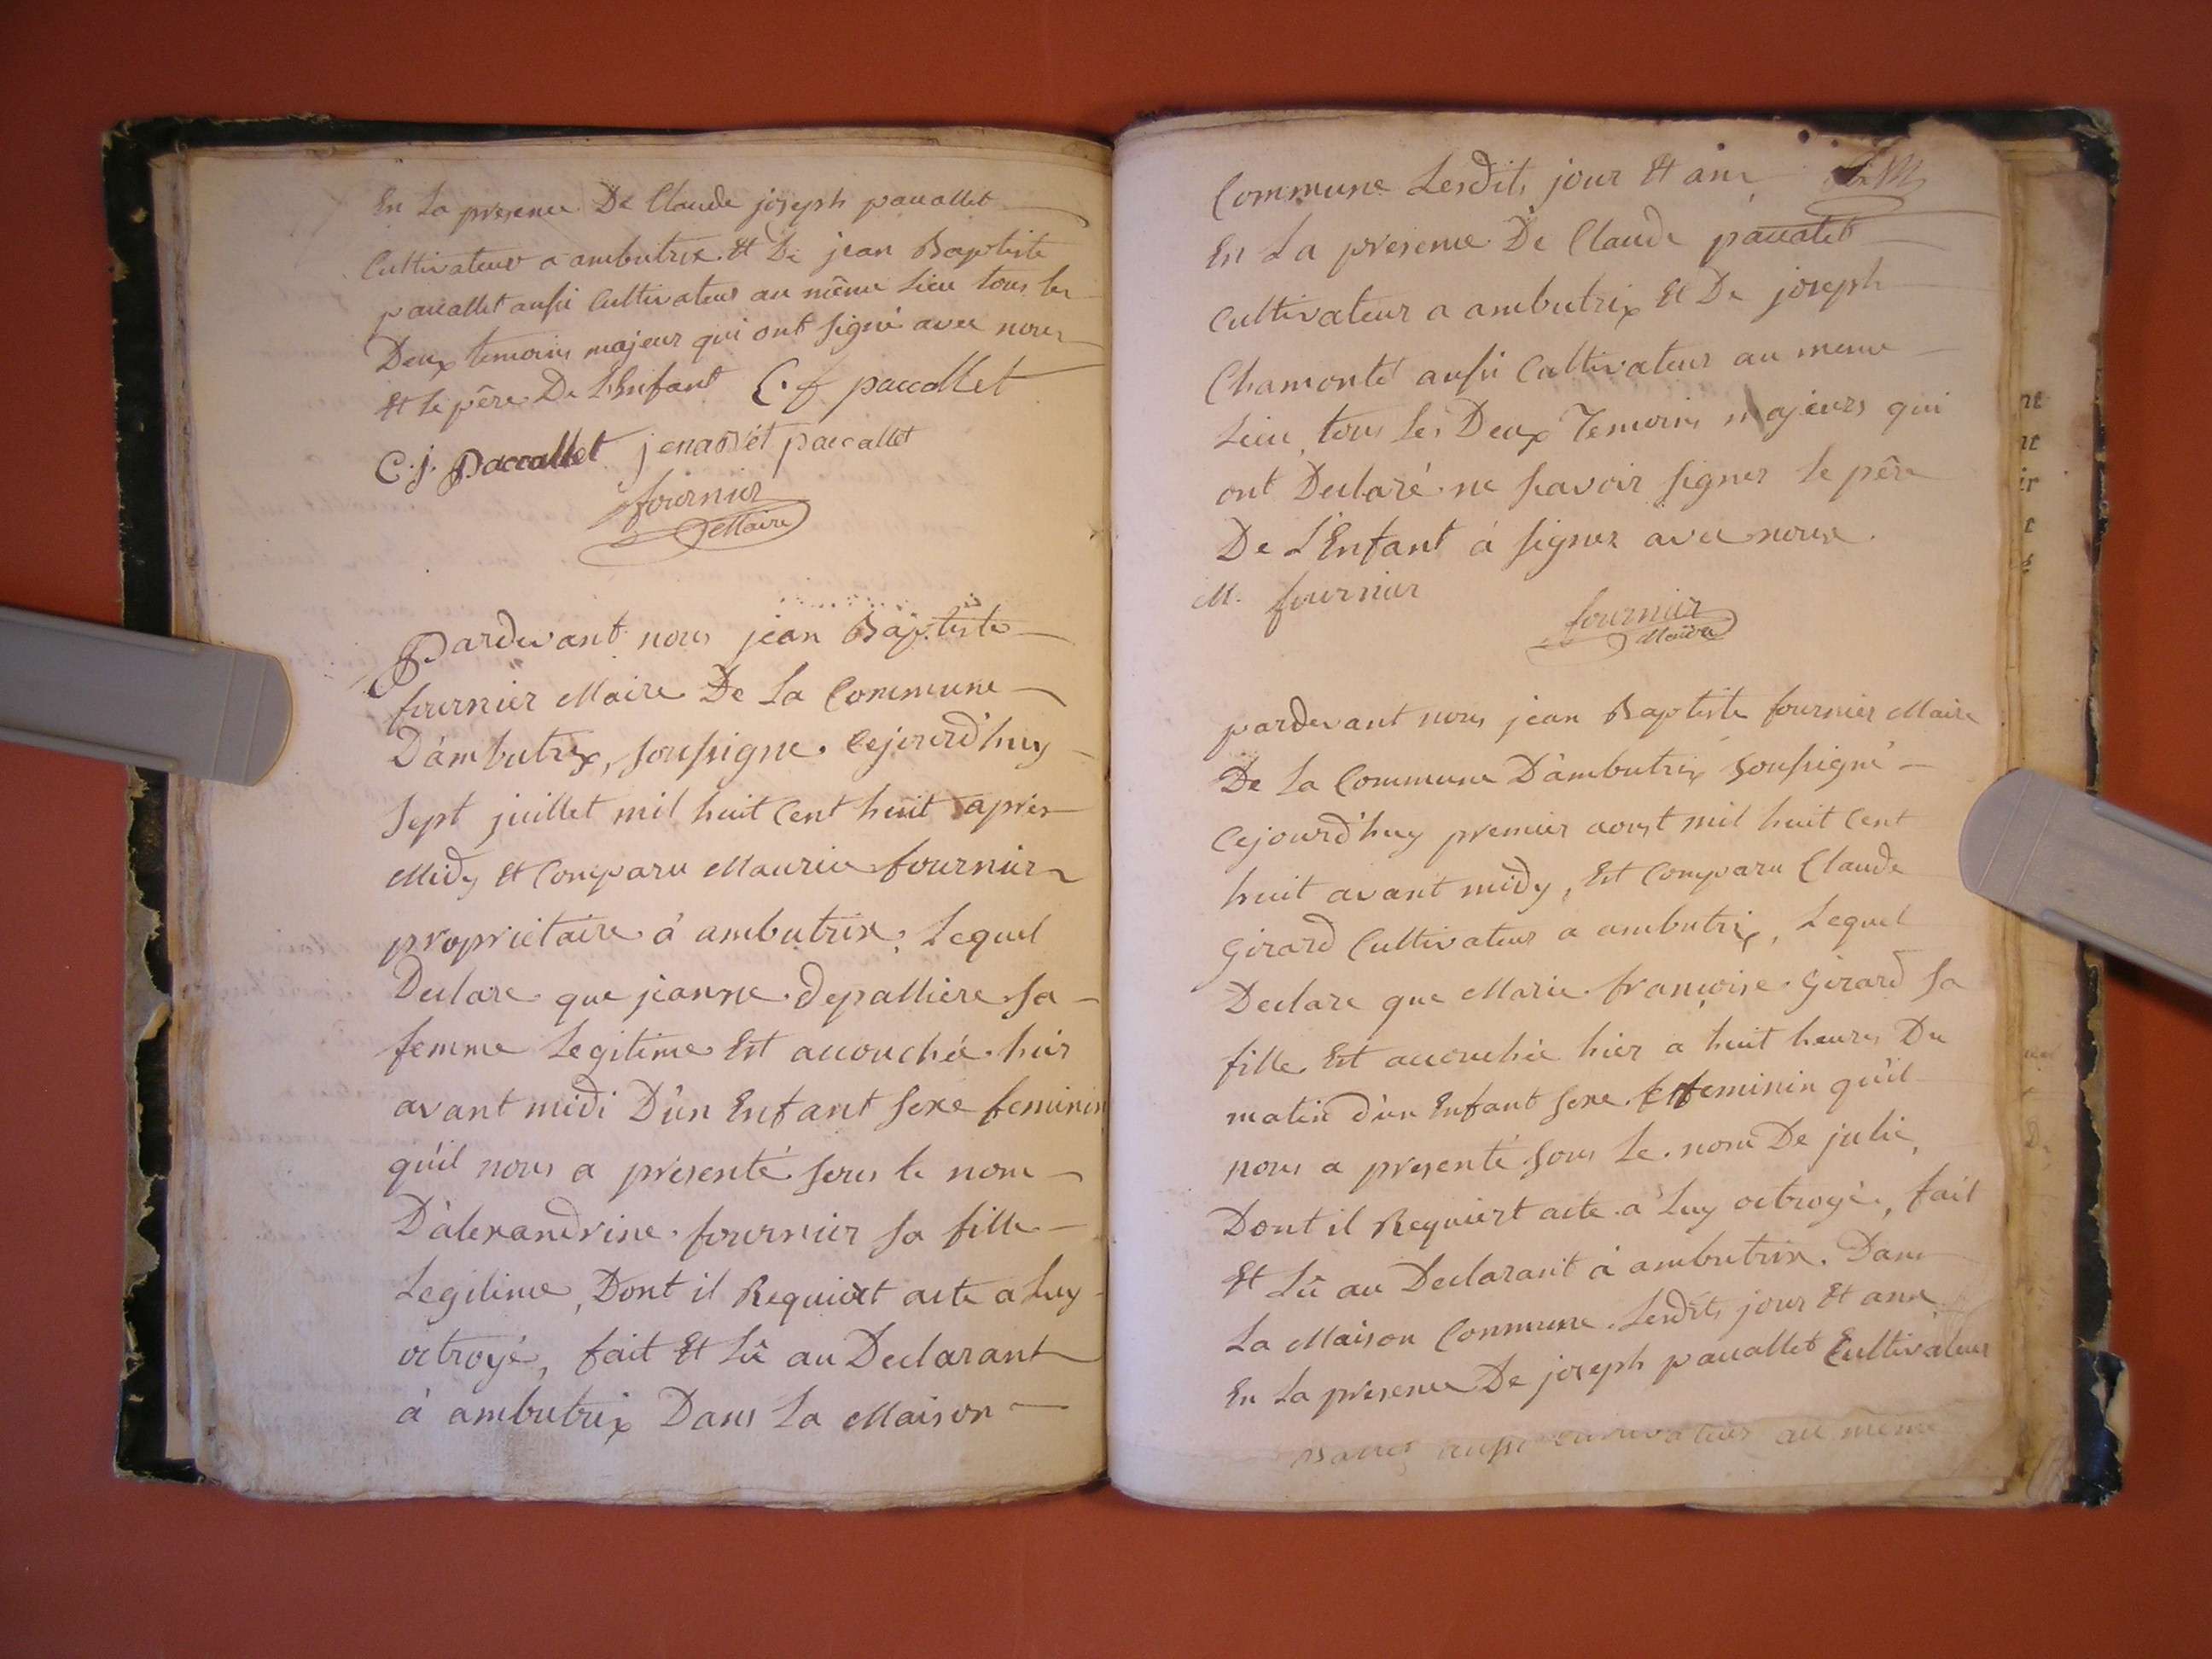 En La presence De Claude joseph paccallet
Cultivateur a ambutrix Et De jean Baptiste
paccallet aussi Cultivateur au même Lieu tous les
Deux temoins majeur qui ont signé avec nous
Et le père De L'Enfant C. j paccallet
C. j. Paccallet paccallet
fournier
Maire
Pardevant nous jean Baptiste
fournier Maire De La Commune
D'ambutrix, soussigne. Cejourd'huy
sept juillet mil huit Cent huit après
Midy Et Comparu Maurice fournier
proprietaire à ambutrix, Lequel
Declare que jeanne depalliere sa
femme Legitime Est accouchée hier
avant midi D'un Enfant sexe feminin
qu'il nous a présenté sous le nom
D'alexandrine fournier sa fille
Legitime, Dont il Requiert acte a Luy
octroyé, fait Et Lû au Declarant
à ambutrix Dans La Maison
Commune Lesdits jour Et an
En La presence De Claude paccalet
Cultivateur a ambutrix Et De joseph
Chamonté aussi Cultivateur au meme
Lieu, tous Les Deux Temoins majeurs qui
ont Declaré ne scavoir signer le père
De L'Enfant à signer avec nous.
M. fournier
fournier
Maire
pardevant nous jean Baptiste fournier Maire
De La Commune D'ambutrix soussigné
Cejourd'huy premier aoust mil huit Cent
huit avant midy, Est Comparu Claude
Girard Cultivateur a ambutrix, Lequel
Declare que Marie françoise Girard sa
fille Est accouchée hier a huit heures Du
matin d'un Enfant sexe feminin qu'il
nous a presenté sous Le nom De julie,
Dont il Requiert acte a Luy octroyé, fait
Et Lû au Declarant à ambutrix. Dans
La Maison Commune Lesdits jour Et an
En La presence De joseph paccallet Cultivateur
aussi cultivateur au meme